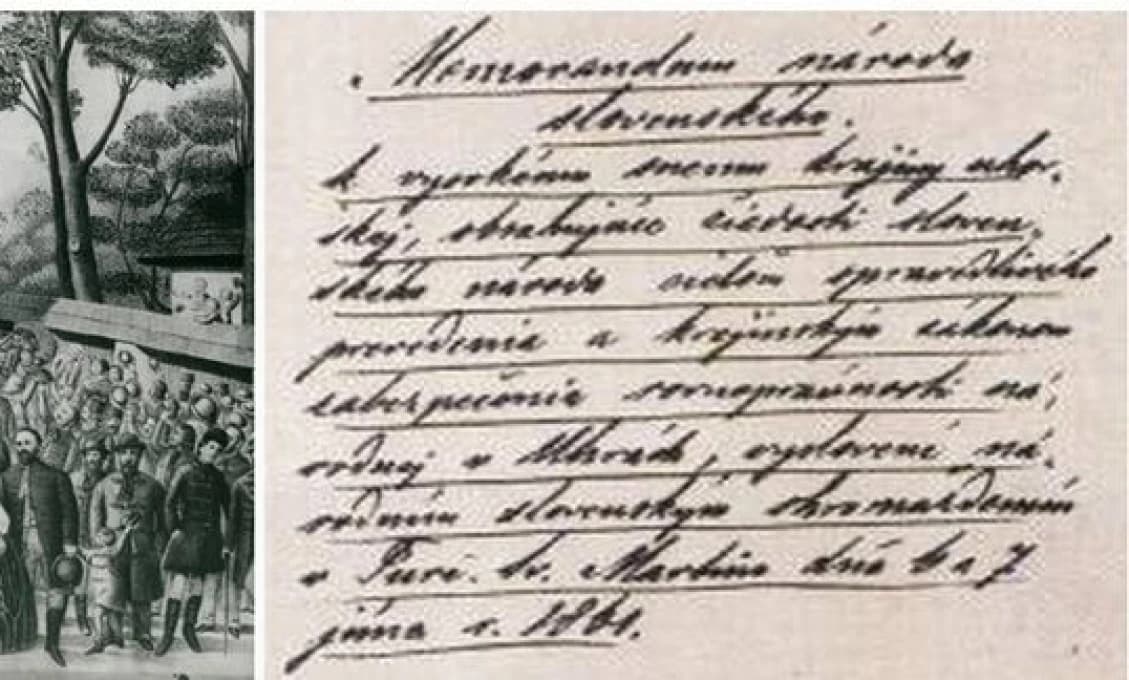 Memorandum národa
slovenského.
k vysokému snemu krajiny uhor-
skej, obsahujúc žiadosti sloven-
ského národa cieľom spravedlivého
prevedenia a krajinským zákonom
zabezpečenia rovnoprávnosti ná-
rodnej v Uhrách, vyslovené ná-
rodním slovenským shromaždením
v Turč. Sv. Martine dňa 6 a 7
júna r. 1861.